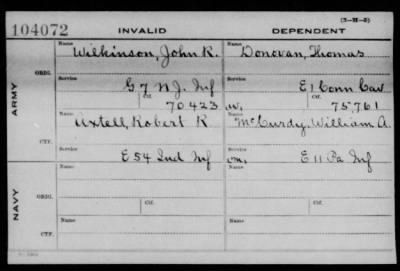 (3-M-3)
104072 INVALID DEPENDENT
Name Wilkinson, John R. Name Donovan, Thomas
ORIG.
Service G 7 N.J. Inf Service E 1 Conn Cav
ARMY
Ctf. 70423 Ctf. 75761
Name Axtell, Robert R Name McCurdy, William A.
CTF.
Service E 54 Ind Inf Service E 11 Pa Inf
Name Name
ORIG.
NAVY
Service Ctf. Service Ctf.
Name Name
CTF.